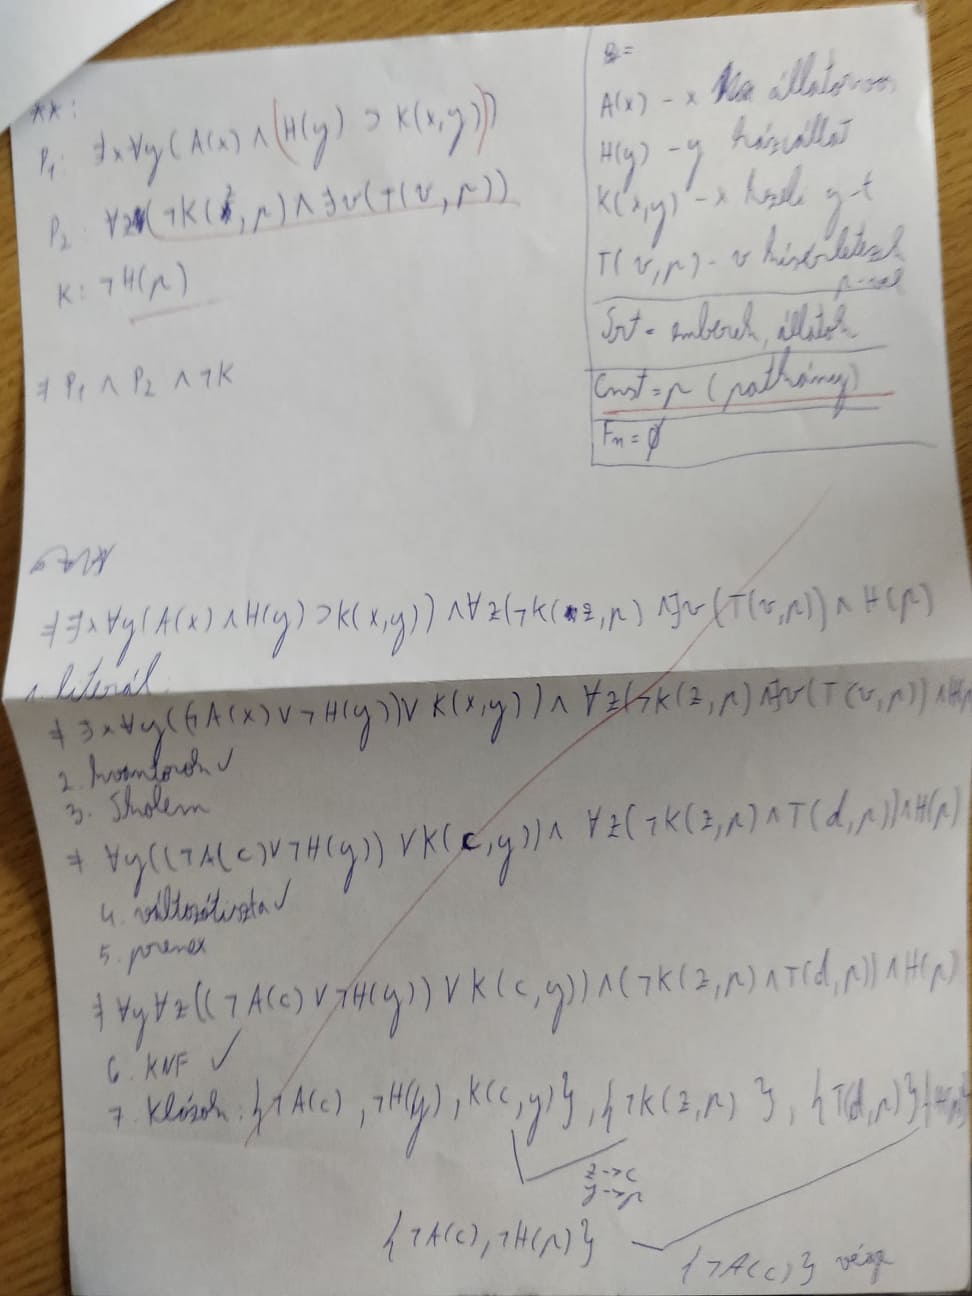 **:
P₁: ∃x∀y(A(x) ∧ (H(y) ⊃ K(x,y)))
P₂: ∀z(¬K(z,p) ∧ ∃v(T(v,p))
K: ¬H(p)
⊨ P₁ ∧ P₂ ∧ ¬K
A(x) - x állatorvos
H(y) - y háziállat
K(x,y) - x kezeli y-t
T(v,p) - v kísérletezik
p-val
Srt = emberek, állatok
Cnst = p (patkány)
Fn = ∅
⊨ ∃x∀y(A(x) ∧ H(y) ⊃ K(x,y)) ∧ ∀z(¬K(z,p) ∧ ∃v(T(v,p)) ∧ H(p)
1. literál
⊨ ∃x∀y((¬A(x) ∨ ¬H(y)) ∨ K(x,y)) ∧ ∀z(¬K(z,p) ∧ ∃v(T(v,p)) ∧ H(p)
2. kvantorok ✓
3. Skolem
⊨ ∀y((¬A(c) ∨ ¬H(y)) ∨ K(c,y)) ∧ ∀z(¬K(z,p) ∧ T(d,p)) ∧ H(p)
4. változótiszta ✓
5. prenex
⊨ ∀y∀z((¬A(c) ∨ ¬H(y)) ∨ K(c,y)) ∧ (¬K(z,p) ∧ T(d,p)) ∧ H(p)
6. KNF ✓
7. Klózok: {¬A(c), ¬H(y), K(c,y)}, {¬K(z,p)}, {T(d,p)} {H(p)}
z->c
y->p
{¬A(c), ¬H(p)}
{¬A(c)} vége